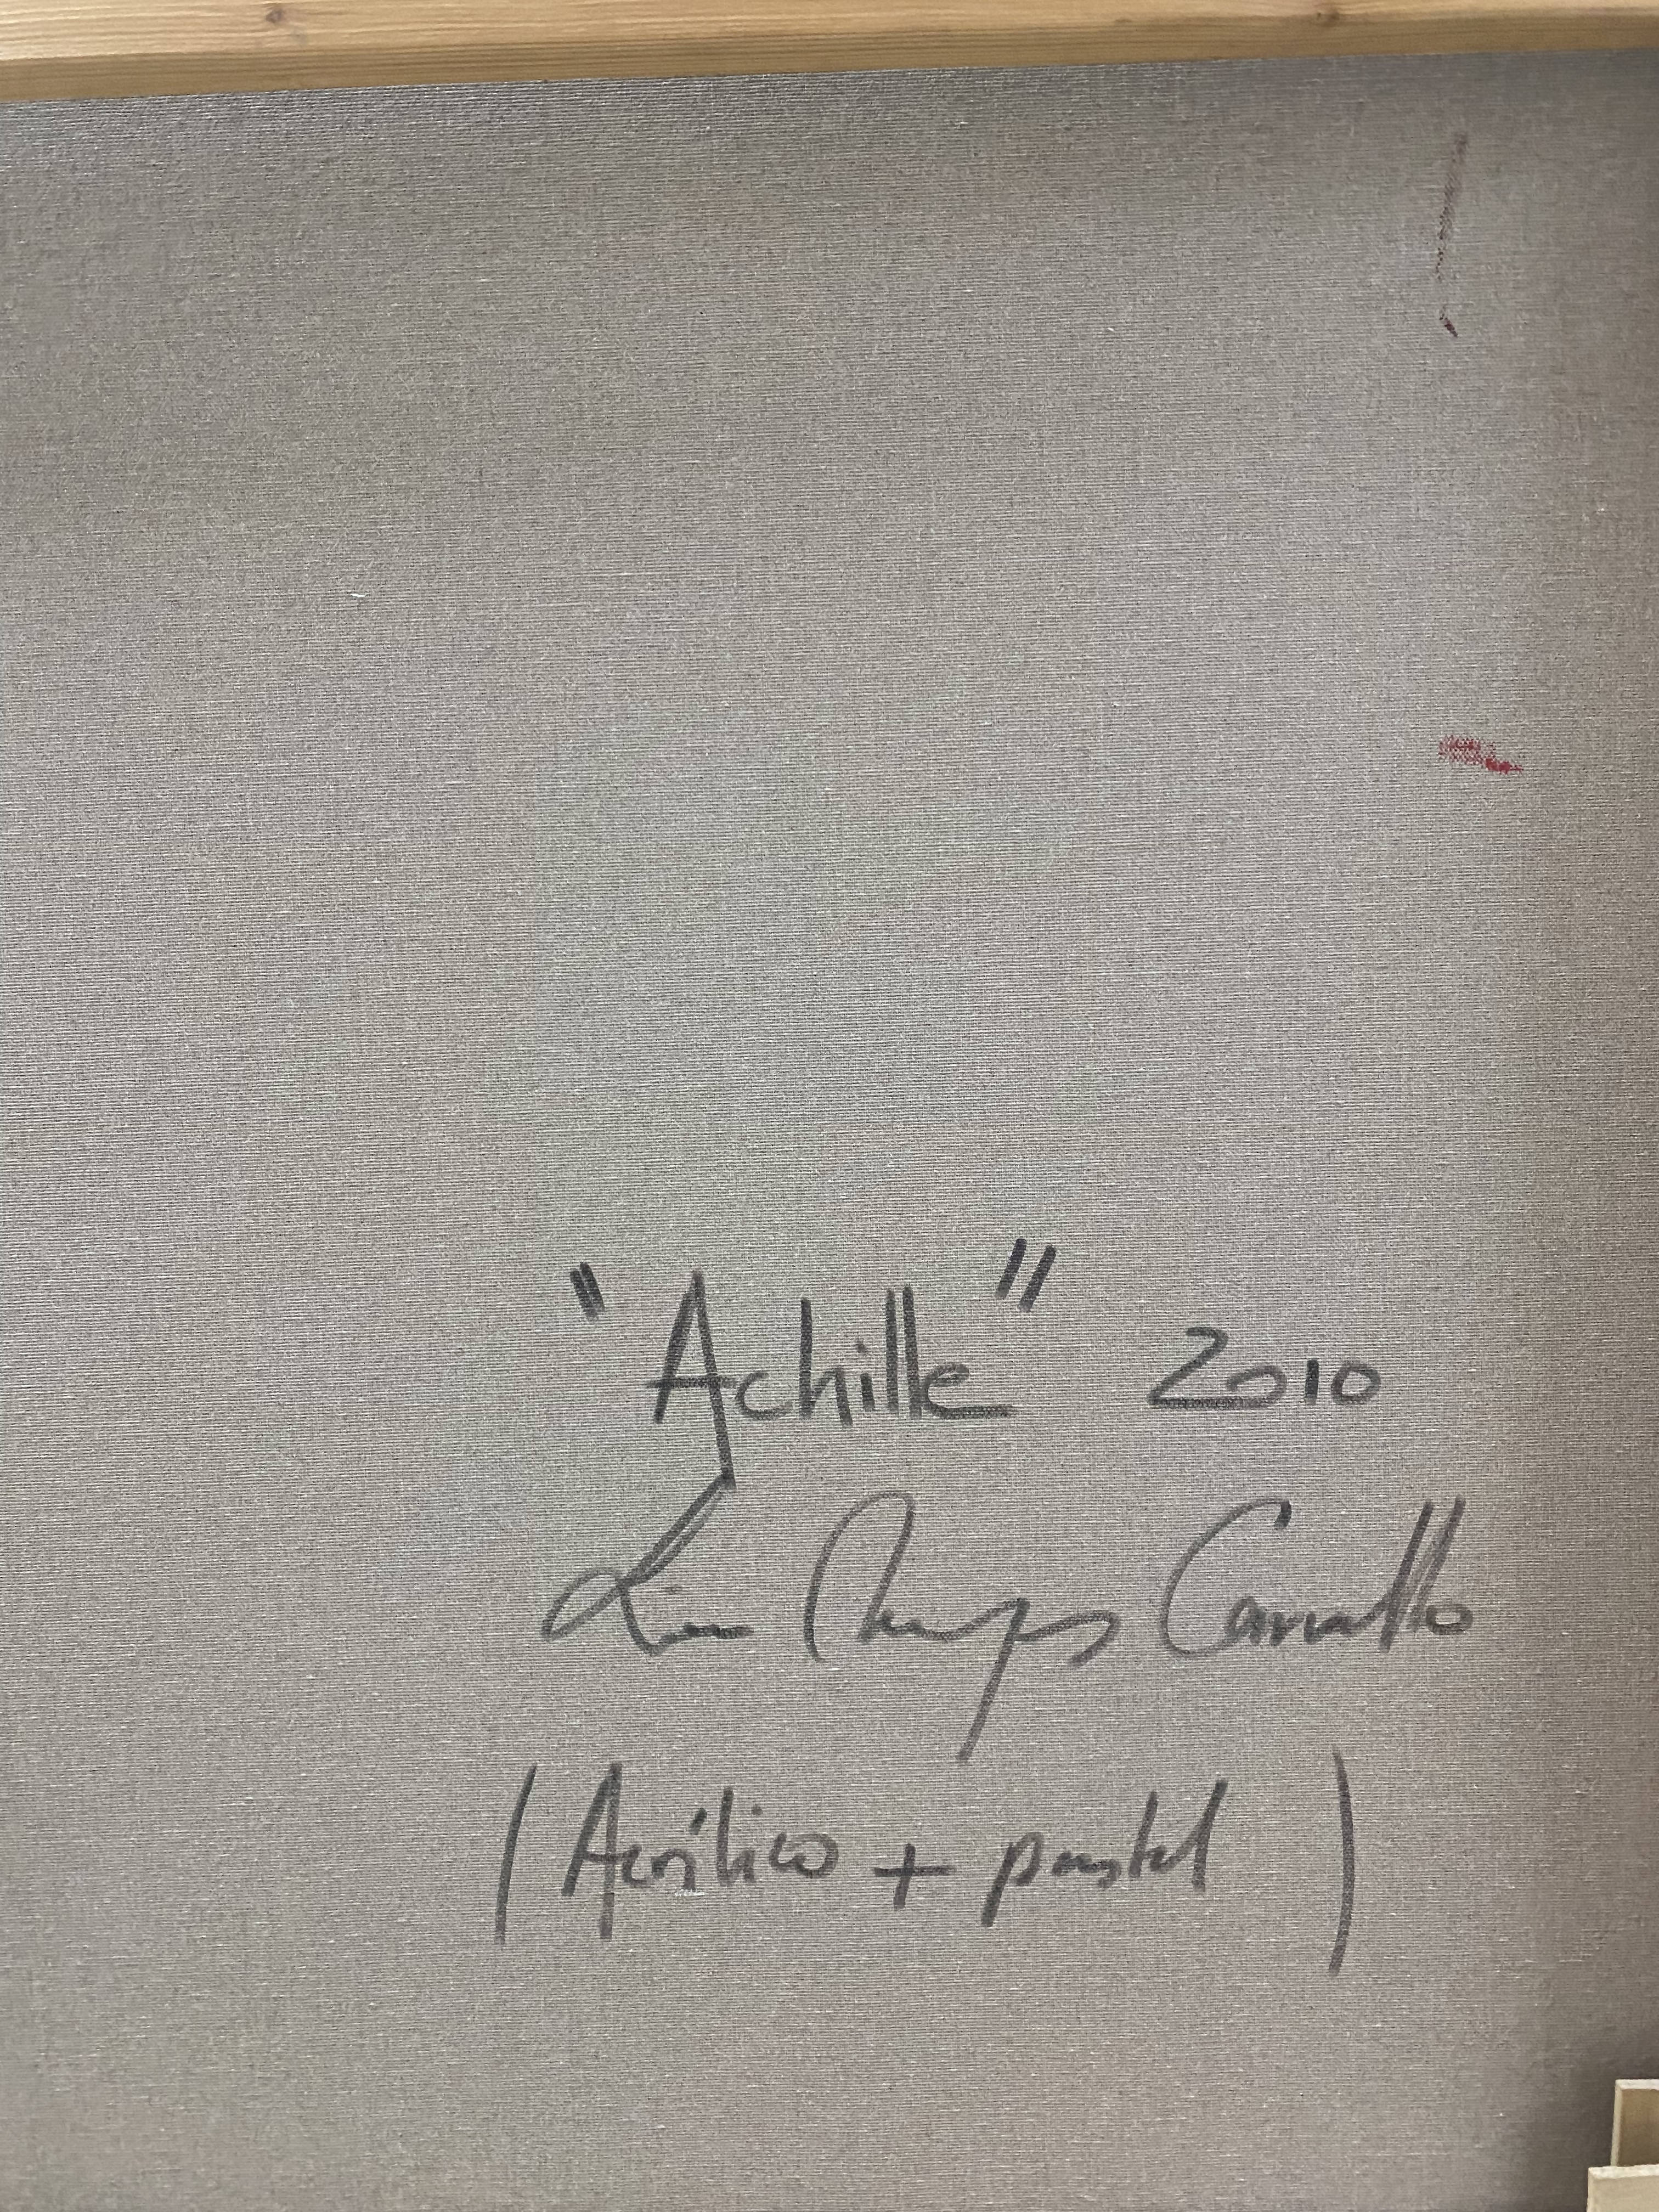 "Achille" 2010
Carvallo
(Acrílico + pastel)